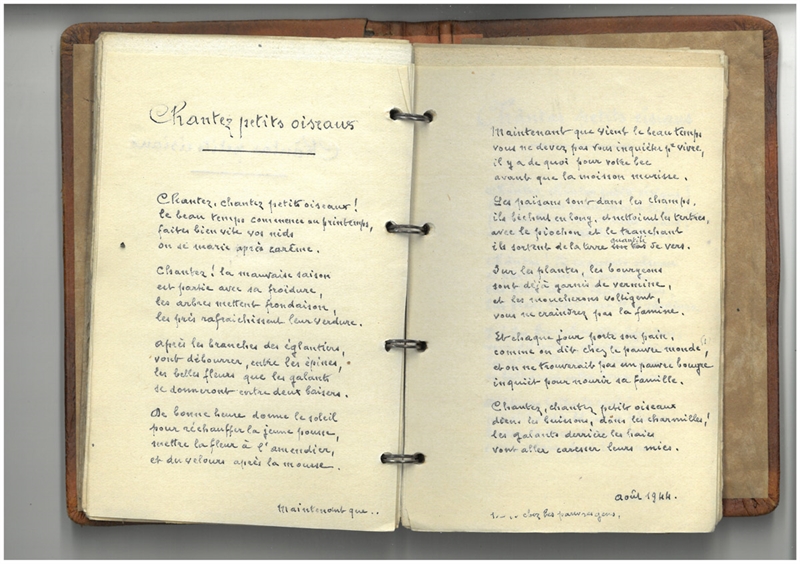 Chantez petits oiseaux
Chantez, chantez petits oiseaux !
le beau temps commence au printemps,
faites bien vite vos nids
on se marie après carême.
Chantez ! la mauvaise saison
est partie avec sa froidure,
les arbres mettent frondaison,
les près rafraichissent leur verdure.
après les branches des églantiers,
vont débourrer, entre les épines,
les belles fleurs que les galants
se donneront entre deux baisers.
De bonne heure donne le soleil
pour réchauffer la jeune pousse,
mettre la fleur à l'amendier,
et du velours après la mousse.
Maintenant que ..
Maintenant que vient le beau temps
vous ne devez pas vous inquiéter pr vivre,
il y a de quoi pour votre bec
avant que la moisson murisse.
Les païsans sont dans les champs.
ils bèchent en long, et nettoient les tertres,
avec le piochon et le tranchant
ils sortent de la terre quantité de vers.
Sur les plantes, les bourgeons
sont déjà garnis de vermine,
et les moucherons voltigent,
vous ne craindrez pas la famine.
Et chaque jour porte son pain.
comme on dit chez le pauvre monde (1),
et on ne trouverait pas un pauvre bougre
inquiet pour nourir sa famille.
Chantez, chantez petits oiseaux
dans les buissons, dans les charmilles,
les galants derrière les haies
vont aller caresser leurs mies.
août 1944.
1... chez les pauvres gens.